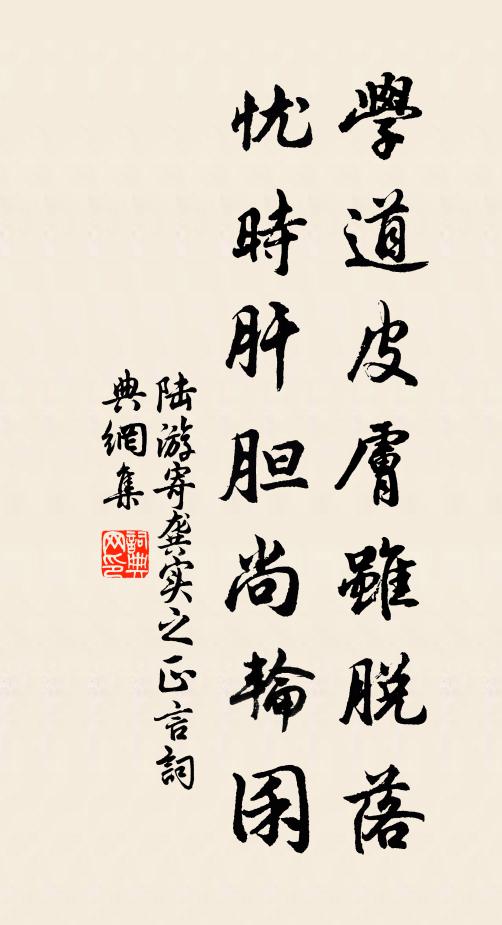 學道皮膚雖脱落
忧時肝胆尚輪囷
陆游寄龚实之正言詞
典網集
詞典網印